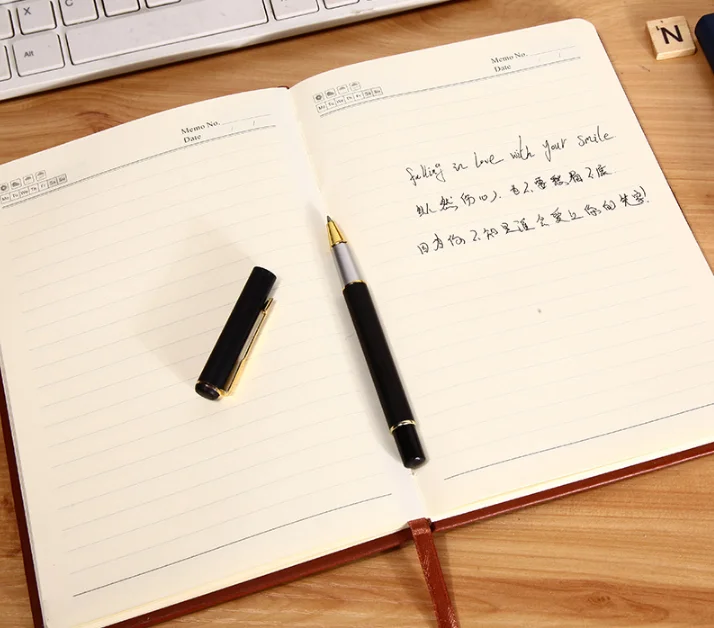 AR
Z
X
C
Memo No.
Date / /
Mo Tu We Th Fr Sa Su
Memo No.
Date / /
Mo Tu We Th Fr Sa Su
falling in love with your smile
虽然
因为你 不知是谁会爱上你的笑容!
N